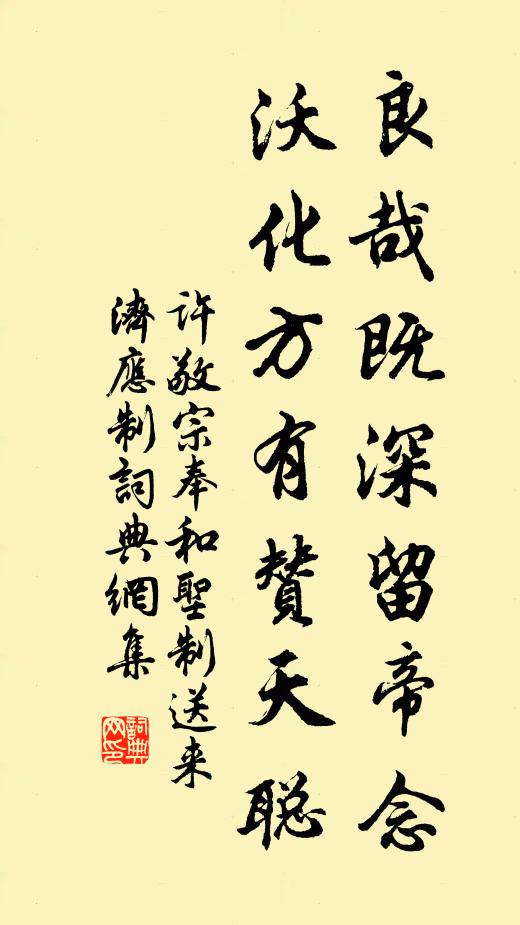 良哉既深留帝念
沃化方有赞天聪
许敬宗奉和聖制送来
濟應制詞典網集
詞典網印